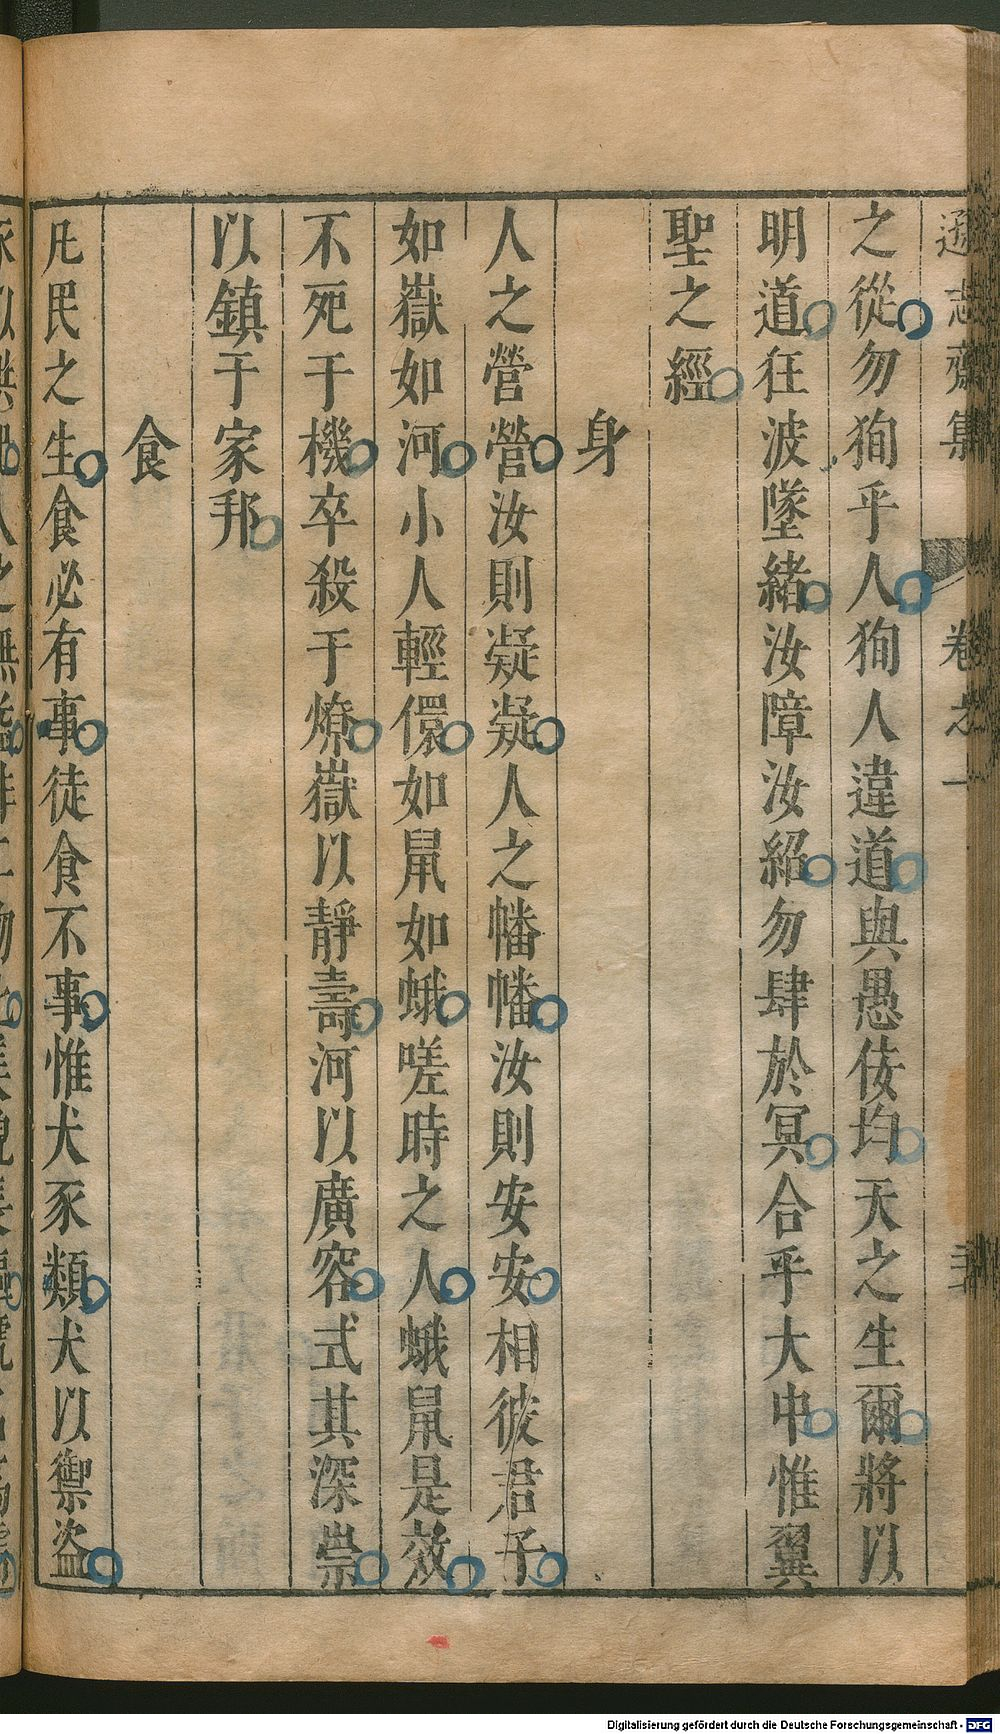 遜志齋集 卷之一
之從勿狥乎人狥人違道與愚伎均天之生爾將以
明道狂波墜緒汝障汝紹勿肆於冥合乎大中惟翼
聖之經
身
人之營營汝則凝凝人之幡幡汝則安安相彼君子
如嶽如河小人輕儇如鼠如蛾嗟時之人蛾鼠是效
不死于機卒殺于燎嶽以靜壽河以廣容式其深崇
以鎮于家邦
食
凡民之生食必有事徒食不事惟犬豕類犬以禦盜
Digitalisierung gefördert durch die Deutsche Forschungsgemeinschaft - DFG